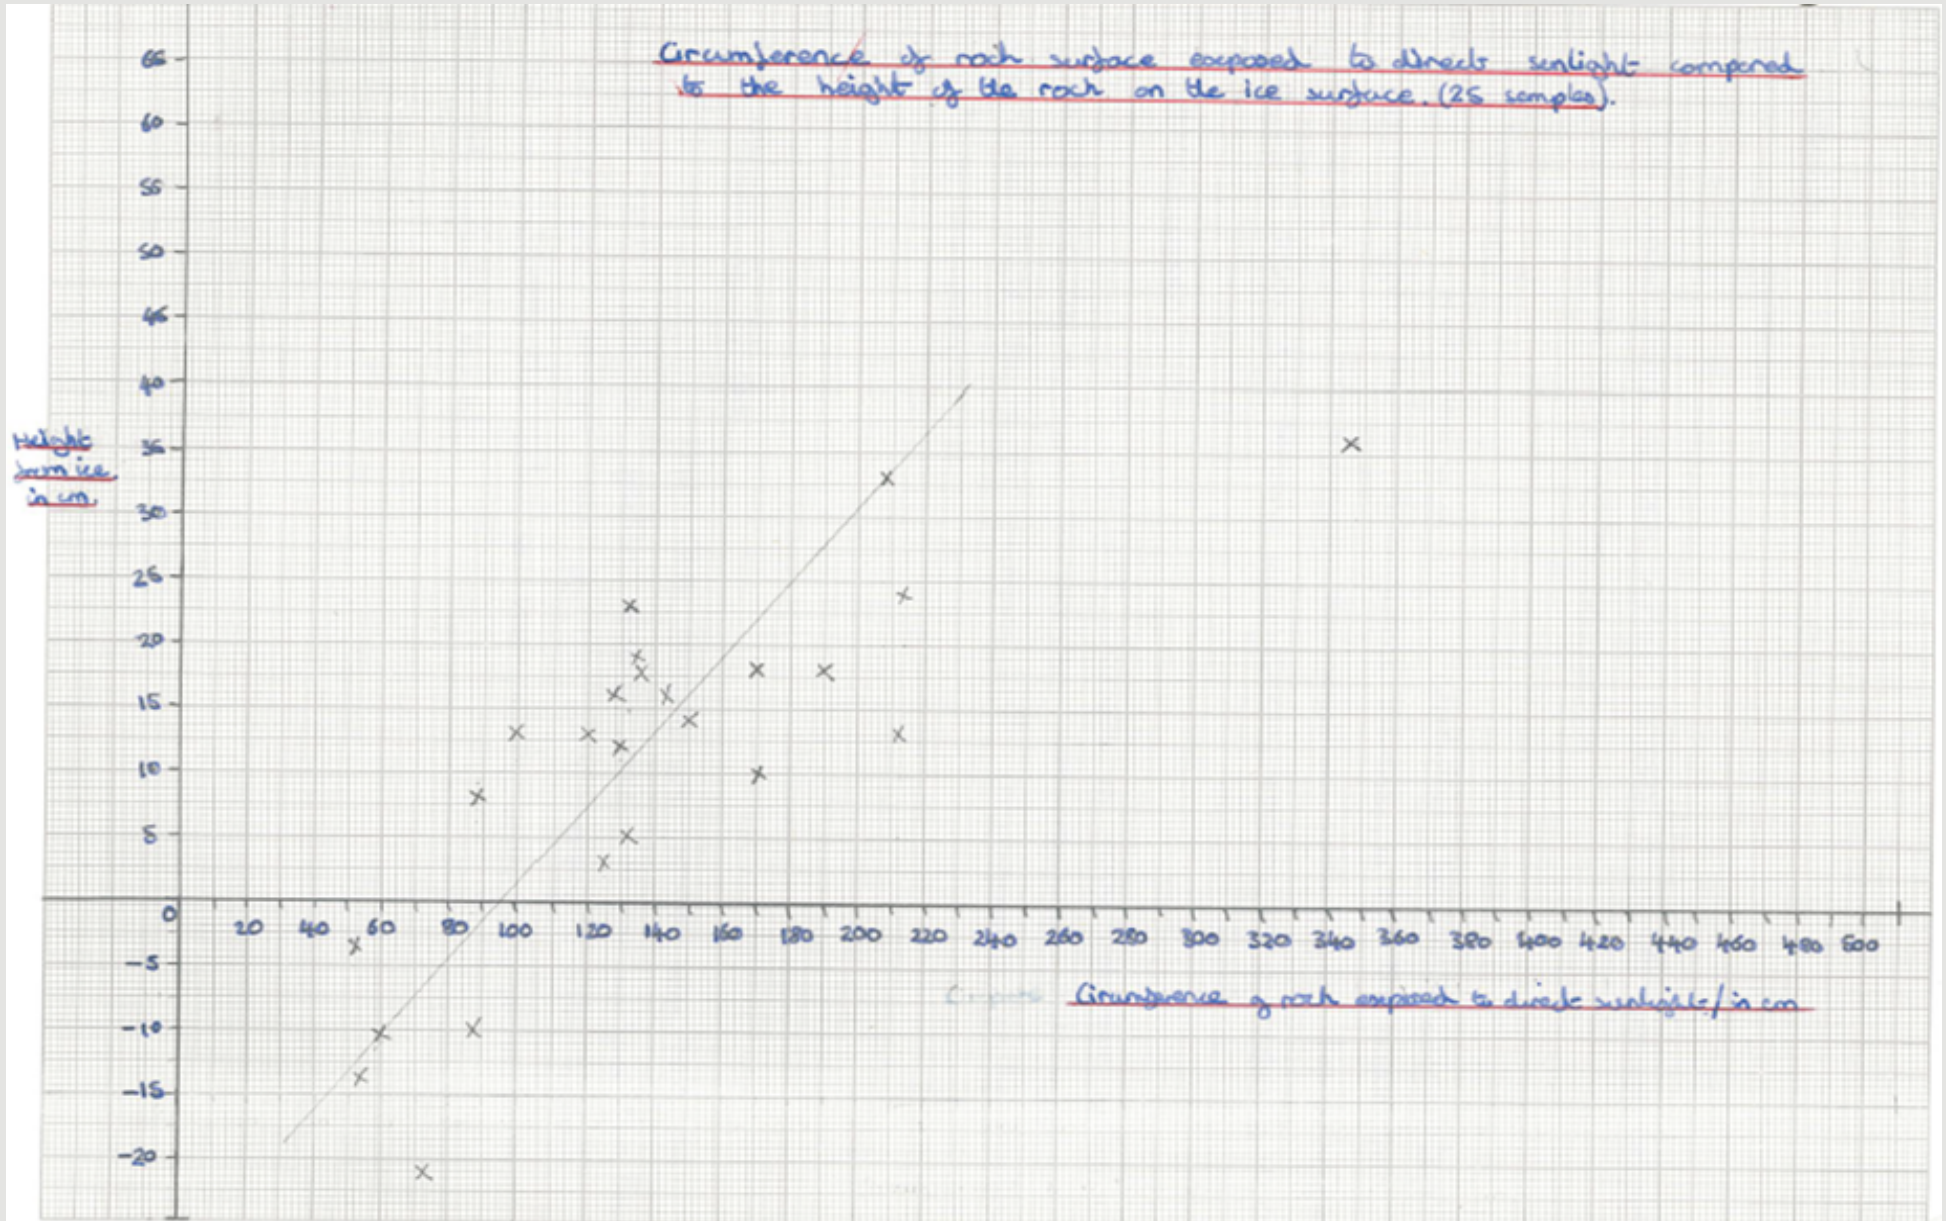 Circumference of rock surface exposed to direct sunlight compared
to the height of the rock on the ice surface. (25 samples).
65
60
55
50
45
40
35
30
25
20
15
10
5
0
-5
-10
-15
-20
Height
from ice
in cm.
20 40 60 80 100 120 140 160 180 200 220 240 260 280 300 320 340 360 380 400 420 440 460 480 500
Circumference of rock exposed to direct sunlight/in cm